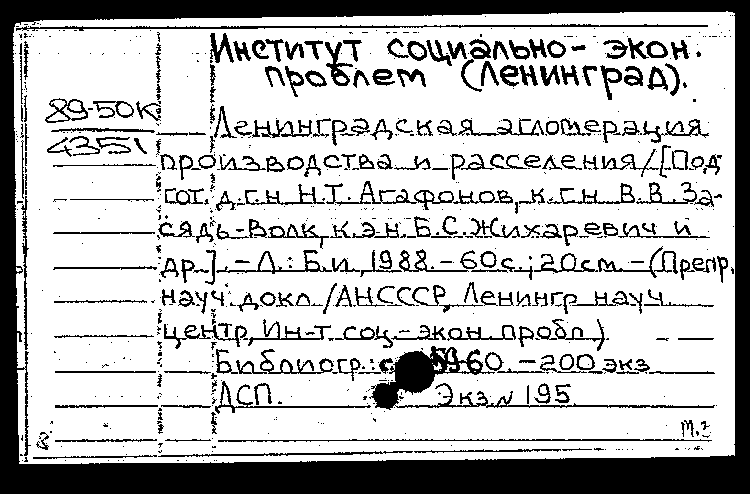 Институт социально-экон.
проблем (Ленинград).
89-50К
4351
Ленинградская агломерация
производства и расселения/[Под
гот. д.г.н Н.Т. Агафонов, к.г.н В.В. За-
сядь-Волк, к.э.н Б.С. Жихаревич и
др.]. – Л.: Б.и, 1988. – 60с.; 20см. – (Препр.
науч. докл /АНСССР, Ленингр науч.
центр, Ин-т соц.-экон. пробл.)
Библиогр.: с 60. – 200 экз
ДСП. Экз № 195
8